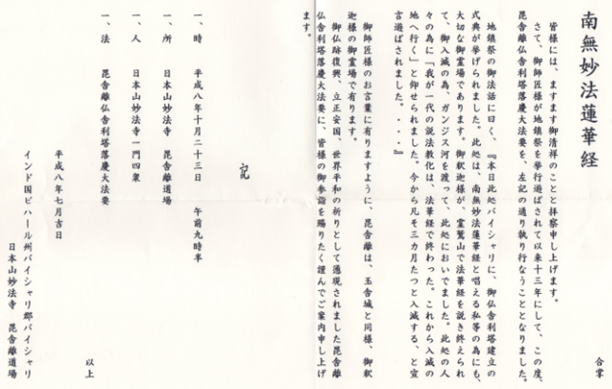 南無妙法蓮華経
合掌
皆様には、ますます御清祥のことと拝察申し上げます。
さて、御師匠様が地鎮祭を挙行遊ばされて以来十三年にして、この度、
毘舎離仏舎利塔落慶大法要を、左記の通り執り行なうこととなりました。
地鎮祭の御法話に曰く、『本日此処バイシャリに、御仏舎利塔建立の
式典が挙げられました。此処は、南無妙法蓮華経と唱える私等の為にも、
大切な御霊場であります。御釈迦様が、霊鷲山で法華経を説き終えられ
て、御入滅の為、ガンジス河を渡って、此処においでました。此処の人
々の為に「我が一代の説法教化は、法華経で終わった。これから入滅の
地へ行く」と仰せられました。今から凡そ三カ月たつと入滅する、と宣
言遊ばされました。・・・』
御師匠様のお言葉に有りますように、毘舎離は、王舎城と同様、御釈
迦様の御霊場で有ります。
御仏跡復興、立正安国、世界平和の祈りとして湧現されました毘舎離
仏舎利塔落慶大法要に、皆様の御参詣を賜りたく謹んでご案内申し上げ
ます。
記
一、時　平成八年十月二十三日　午前九時半
一、所　日本山妙法寺　毘舎離道場
一、人　日本山妙法寺一門四衆
一、法　毘舎離仏舎利塔落慶大法要
以上
平成八年七月吉日
インド国ビハール州バイシャリ郡バイシャリ
日本山妙法寺　毘舎離道場